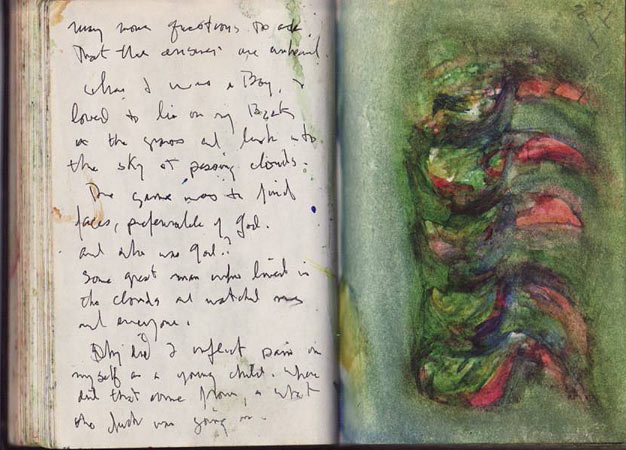 many more questions to ask
That the answers are
When I was a Boy, I
loved to lie on my Back
in the grass at look into
the sky at passing clouds.
The game was to find
faces, preferrable of God.
and who was God??
Some great man who lived in
the clouds at watched me
and everyone.
Why did I inflict pain on
myself as a young child. where
did that come from, a what
the fuck was going on.